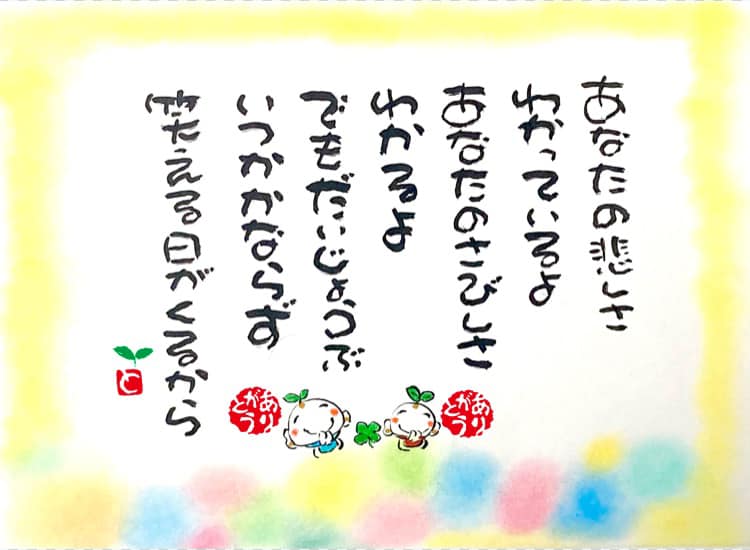 あなたの悲しさ
わかっているよ
あなたのさびしさ
わかるよ
でもだいじょうぶ
いつかかならず
笑える日がくるから
ありがとう
ありがとう
と